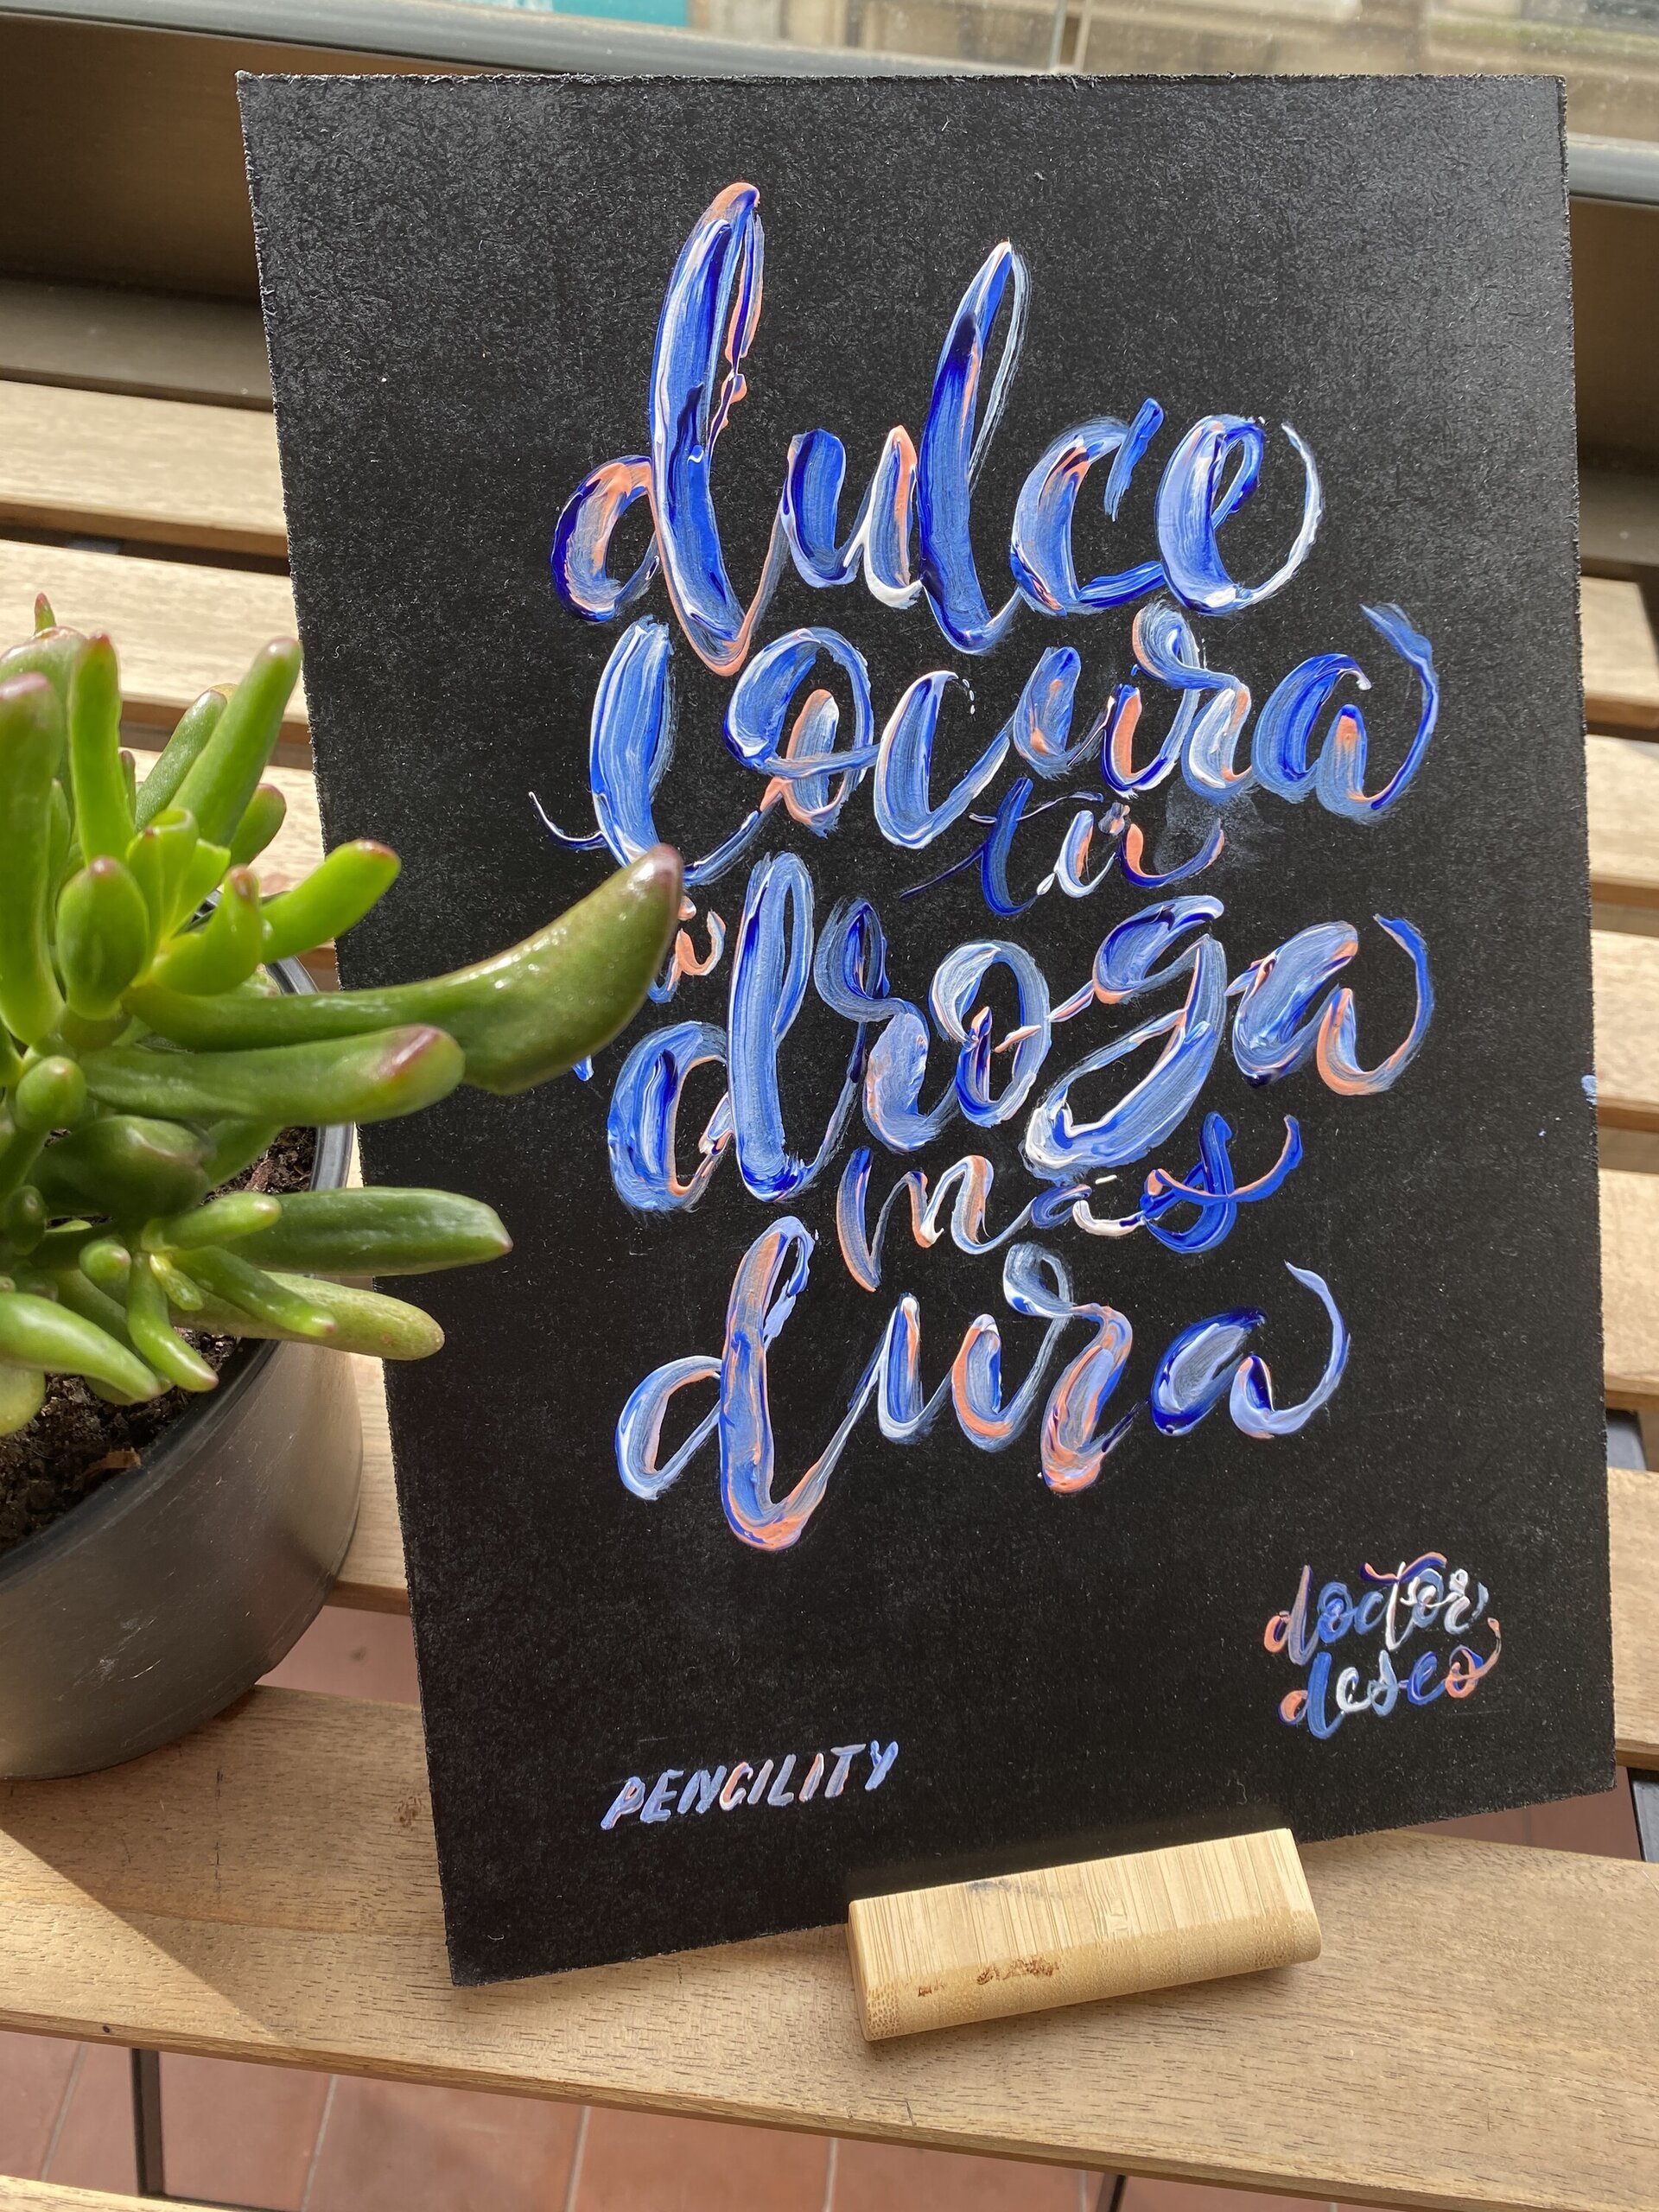 dulce
locura
tú
droga
más
dura
doctor
deseo
PENCILITY